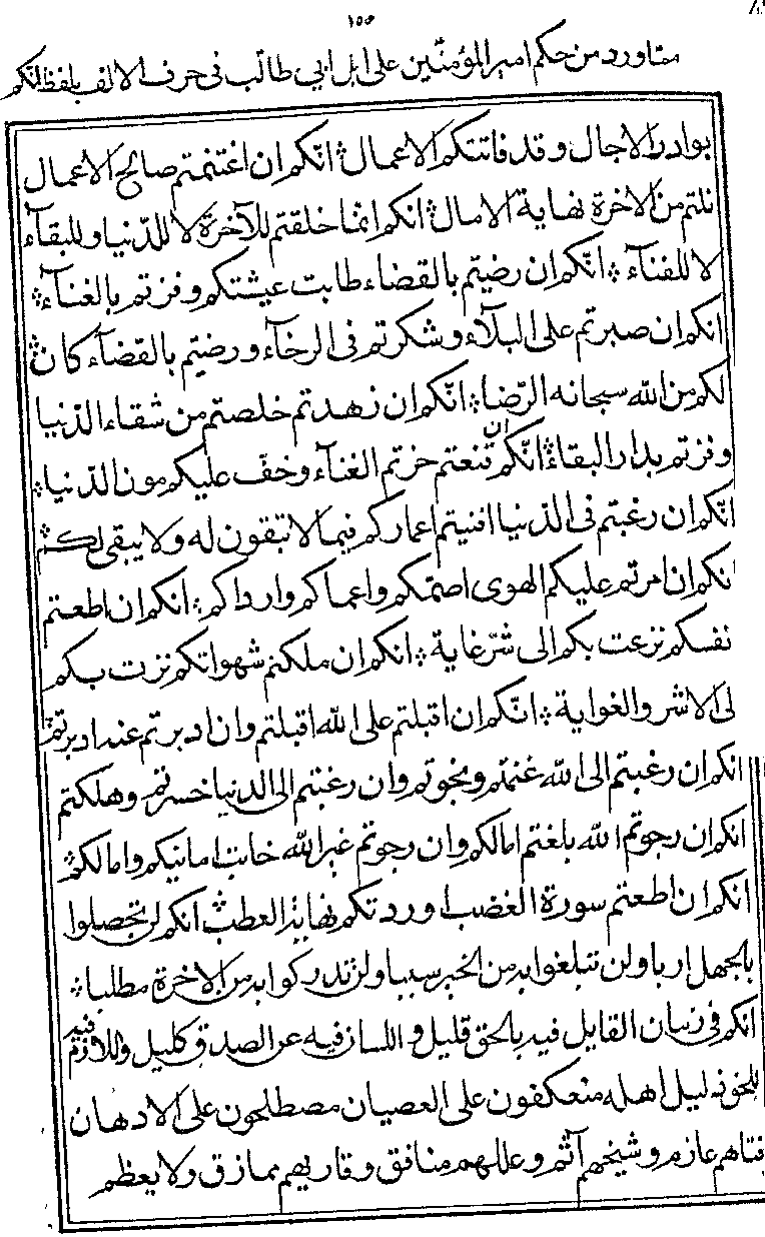 ١٥٥
مما ورد من حكم امير المؤمنين على ابن ابي طالب فى حرف الالف بلفظ انكم
بوادر الاجال وقد فاتتكم الاعمال ۞ انكم ان اغتنمتم صالح الاعمال
نلتم من الاخرة نهاية الامال ۞ انكم انما خلقتم للآخرة لا للدنيا وللبقآء
لا للفنآء ۞ انكم ان رضيتم بالقضاء طابت عيشتكم وفزتم بالغنآء ۞
انكم ان صبرتم على البلآء وشكرتم فى الرخآء ورضيتم بالقضآء كان
لكم من الله سبحانه الرّضا ۞ انكم ان زهدتم خلصتم من شقاء الدّنيا
وفزتم بدار البقاء ۞ انّكم ان قنعتم حزتم الغنآء وخفّ عليكم مون الدّنيا ۞
انكم ان رغبتم فى الدّنيا افنيتم اعماركم فيما لا تبقون له ولا يبقى لكم ۞
نكم ان امرتم عليكم الهوى اصمّكم واعماكم وارداكم ۞ انكم ان اطعتم
نفسكم نزعت بكم الى شرّ غاية ۞ انكم ان ملكتم شهواتكم نزت بكم
لى الاشر والغواية ۞ انّكم ان اقبلتم على الله اقبلتم وان ادبرتم عنه ادبرتم ۞
انكم ان رغبتم الى الله غنمتم ونجوتم وان رغبتم الى الدنيا خسرتم وهلكتم
انكم ان رجوتم الله بلغتم امالكم وان رجوتم غير الله خابت امانيكم وامالكم ۞
انكم ان اطعتم سورة الغضب اوردتكم نهاية العطب ۞ انكم لن تحصلوا
بالجهل اربا ولن تبلغوا به من الخير سببا ولن تدركوا به من الاخرة مطلبا ۞
انكم فى زمان القايل فيه بالحق قليل و اللسان فيه عن الصدق كليل واللازم فيه
للحق ذليل اهله منعكفون على العصيان مصطلحون على الادهان
فتاهم عازم وشيخهم آثم وعالمهم منافق وقاريهم ممازق ولا يعظم